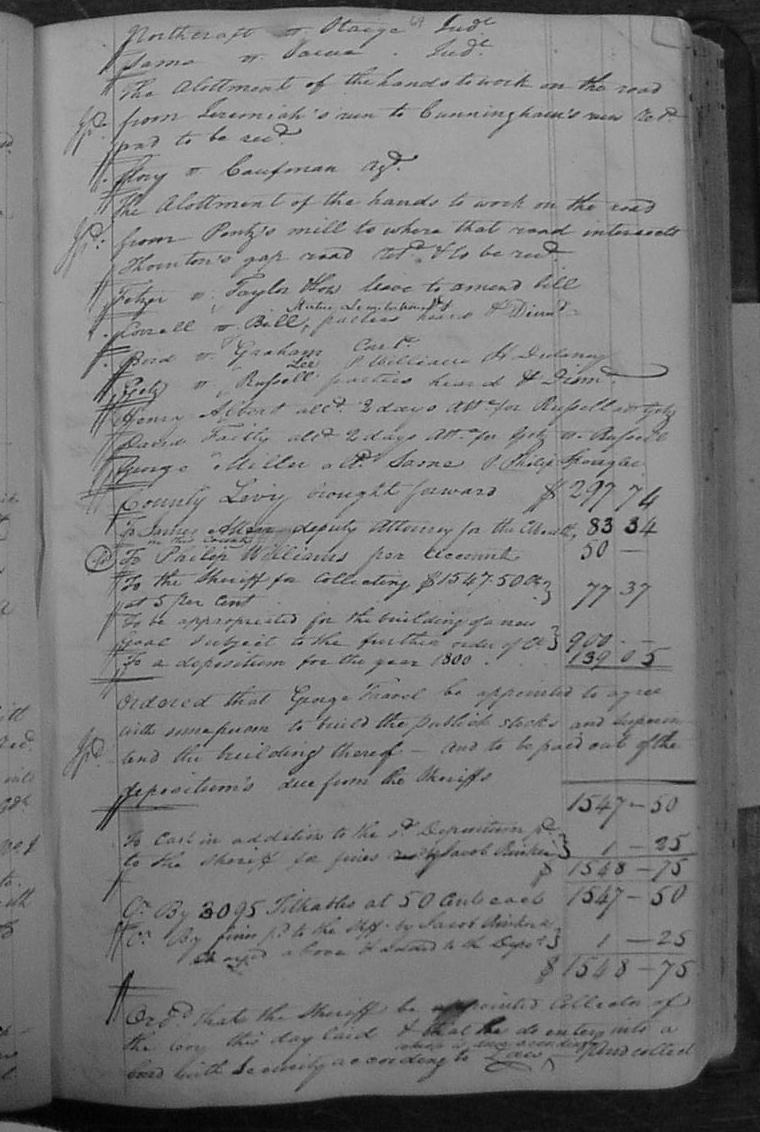 Northcraft vs Stage Judt.
Same vs . Judt.
The Alottment of the hands to work on the road
from Jeremiah's run to Cunningham's run retd.
and to be recd.
Story vs Caufman agd.
The Alottment of the hands to work on the road
from Pentz's mill to where that road intersects
Thornton's gap road retd. & to be recd.
vs Taylor leave to amend bill
Statue Limitations
vs Bell, parties heard & Dismd.
vs Graham Contd.
Lee & William H Dulaney
Getz vs Russell parties heard & Dismd.
Henry Albert alld. 2 days Atte. for Russell vs Getz
David alld 2 days Atte. for Getz vs Russell
George Miller alld. Same & Philip Spangler
County Levy brought forward $ 297 74
To James deputy Attorney for the Cwealth, 83 34
in this County
To Philip Williams per account 50 —
To the Sheriff for Collecting $1547.50 Cts
at 5 per Cent 77 37
To be appropriated for the building of a new
Goal Subject to the further order of Ct 900 - —
To a depositum for the year 1800 139 05
Ordered that George be appointed to agree
with some person to build the publick stocks and superin
tend the building thereof — and to be paid out of the
depositum's due from the Sheriffs
1547 — 50
To Cash in addition to the sd. Depositum pd.
to the Sheriff for fines by Jacob 1 — 25
$ 1548 — 75
Cr. By 3095 Tithables at 50 Cents each 1547 — 50
Cr. By fines pd. to the Shff. by Jacob
Charged above & added to the Depot. 1 — 25
$ 1548 — 75
Ord. that the Sheriff be appointed Collector of
the levy this day laid & that he do enter into a
bond with Security according to Law and collect